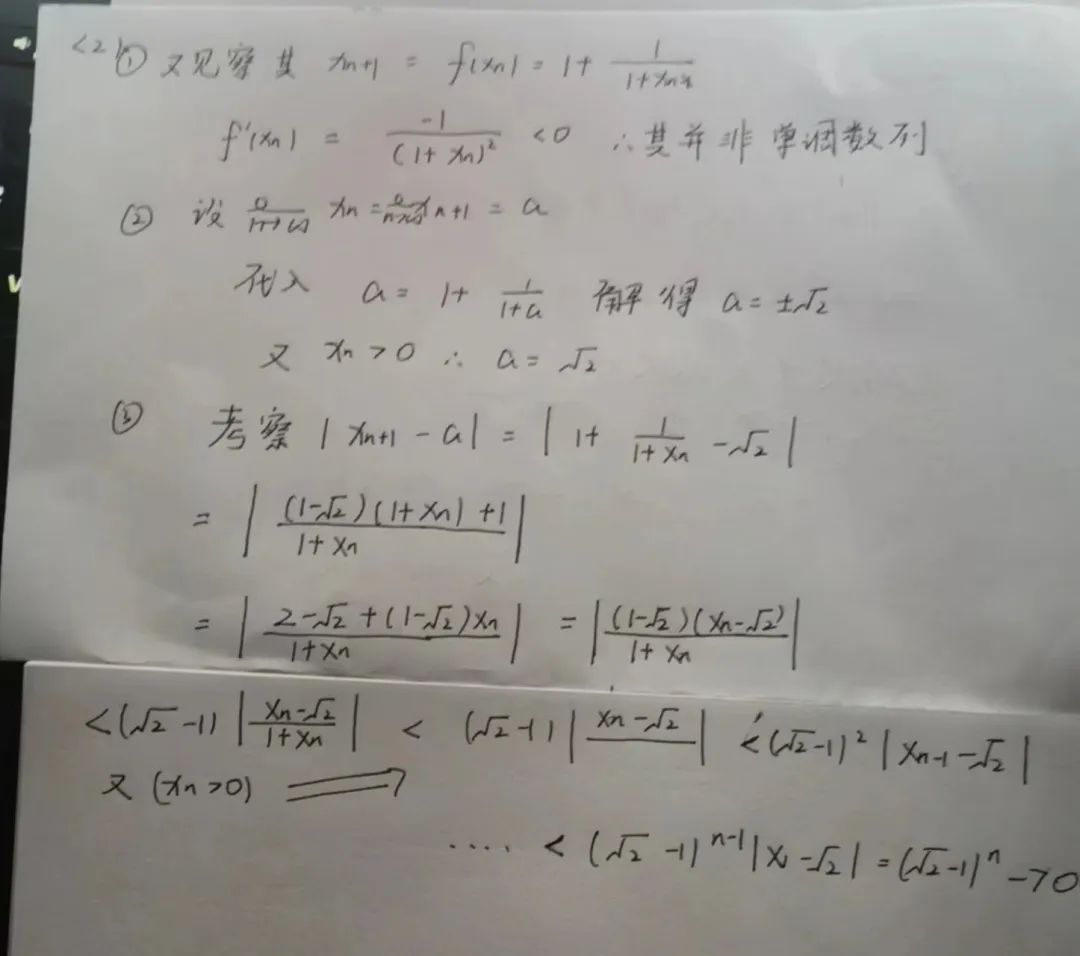 <2> ① 又见察其 xn+1 = f(xn) = 1+ 1/(1+xn)
f'(xn) = -1/(1+xn)² <0 ∴其并非单调数列
② 设 xn = xn+1 = a
代入 a = 1+ 1/(1+a) 解得 a = ±√2
又 xn>0 ∴ a = √2
③ 考察 |xn+1 - a| = |1+ 1/(1+xn) -√2|
= |((1-√2)(1+xn)+1)/(1+xn)|
= |(2-√2+(1-√2)xn)/(1+xn)| = |((1-√2)(xn-√2))/(1+xn)|
<(√2-1)|(xn-√2)/(1+xn)| < (√2-1)|xn-√2| <(√2-1)²|xn-1-√2|
又 (xn>0) ⟹
.... < (√2-1)^(n-1)|x₁-√2| = (√2-1)^n ->0